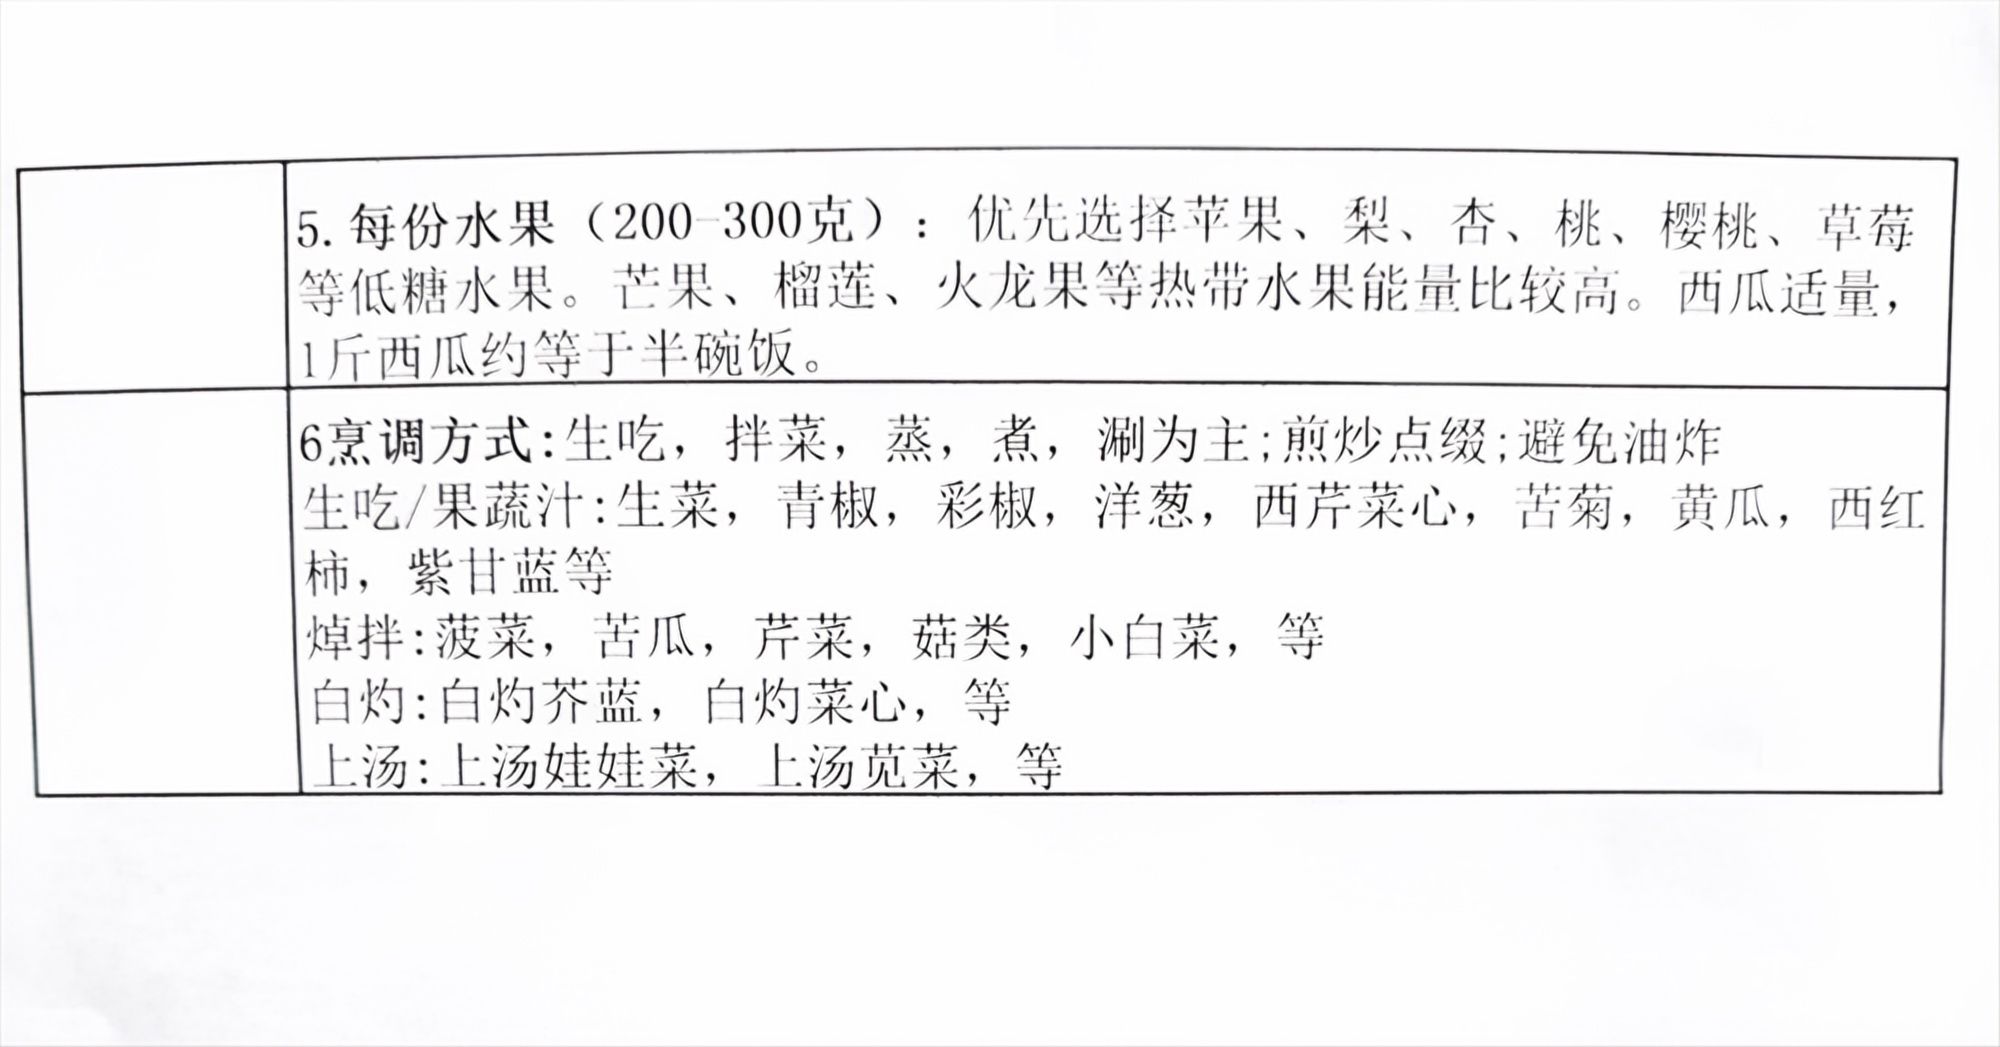 5. 每份水果（200-300克）：优先选择苹果、梨、杏、桃、樱桃、草莓
等低糖水果。芒果、榴莲、火龙果等热带水果能量比较高。西瓜适量，
1斤西瓜约等于半碗饭。
6烹调方式:生吃，拌菜，蒸，煮，涮为主;煎炒点缀;避免油炸
生吃/果蔬汁:生菜，青椒，彩椒，洋葱，西芹菜心，苦菊，黄瓜，西红
柿，紫甘蓝等
焯拌:菠菜，苦瓜，芹菜，菇类，小白菜，等
白灼:白灼芥蓝，白灼菜心，等
上汤:上汤娃娃菜，上汤苋菜，等